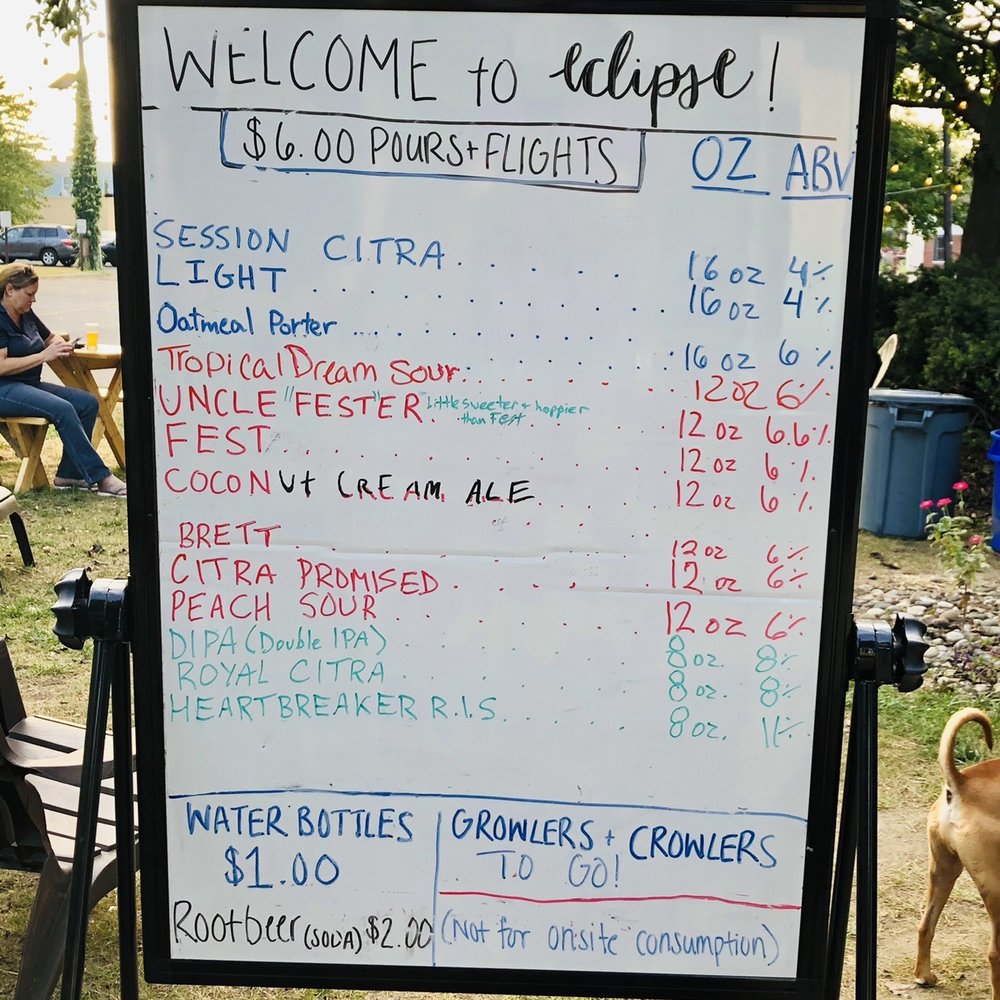 WELCOME to eclipse!
$6.00 POURS + FLIGHTS OZ ABV
SESSION CITRA . . . . . . 16 oz 4%
LIGHT . . . . . . . . . . 16 oz 4%
Oatmeal Porter . . . . . . . . . . 16 oz 6%
Tropical Dream Sour . . . . . . . 12 oz 6%
UNCLE "FESTER" Little sweeter + hoppier than Fest . . . . 12 oz 6.6%
FEST . . . . . . . . . . 12 oz 6%
COCONUt CREAM ALE . . . . . 12 oz 6%
BRETT . . . . . . . . . . 12 oz 6%
CITRA PROMISED . . . . . . 12 oz 6%
PEACH SOUR . . . . . . . 12 oz 6%
DIPA (Double IPA) . . . . . . . 8 oz. 8%
ROYAL CITRA . . . . . . . 8 oz. 8%
HEARTBREAKER R.I.S . . . . . 8 oz. 11%
WATER BOTTLES
$1.00
Rootbeer (SODA) $2.00
GROWLERS + CROWLERS
TO GO!
(Not for onsite consumption)